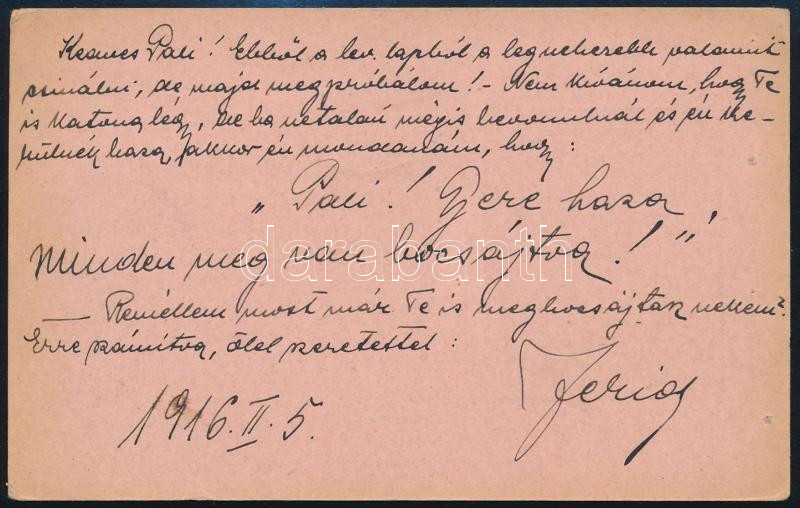 Kedves Pali! Ebből a lev. lapból a legnehezebb valamit
csinálni, de majd megpróbálom! - Nem kívánom, hogy Te
is katona légy, de ha netalán mégis bevonulnál és én ke-
rülnék haza, akkor én mondanám, hogy:
„Pali! Gere haza,
Minden meg van bocsájtva!"
— Remélem most már Te is megbocsájtasz nekem?
Erre számítva, ölel szeretettel:
1916. II. 5.
darabanth.com